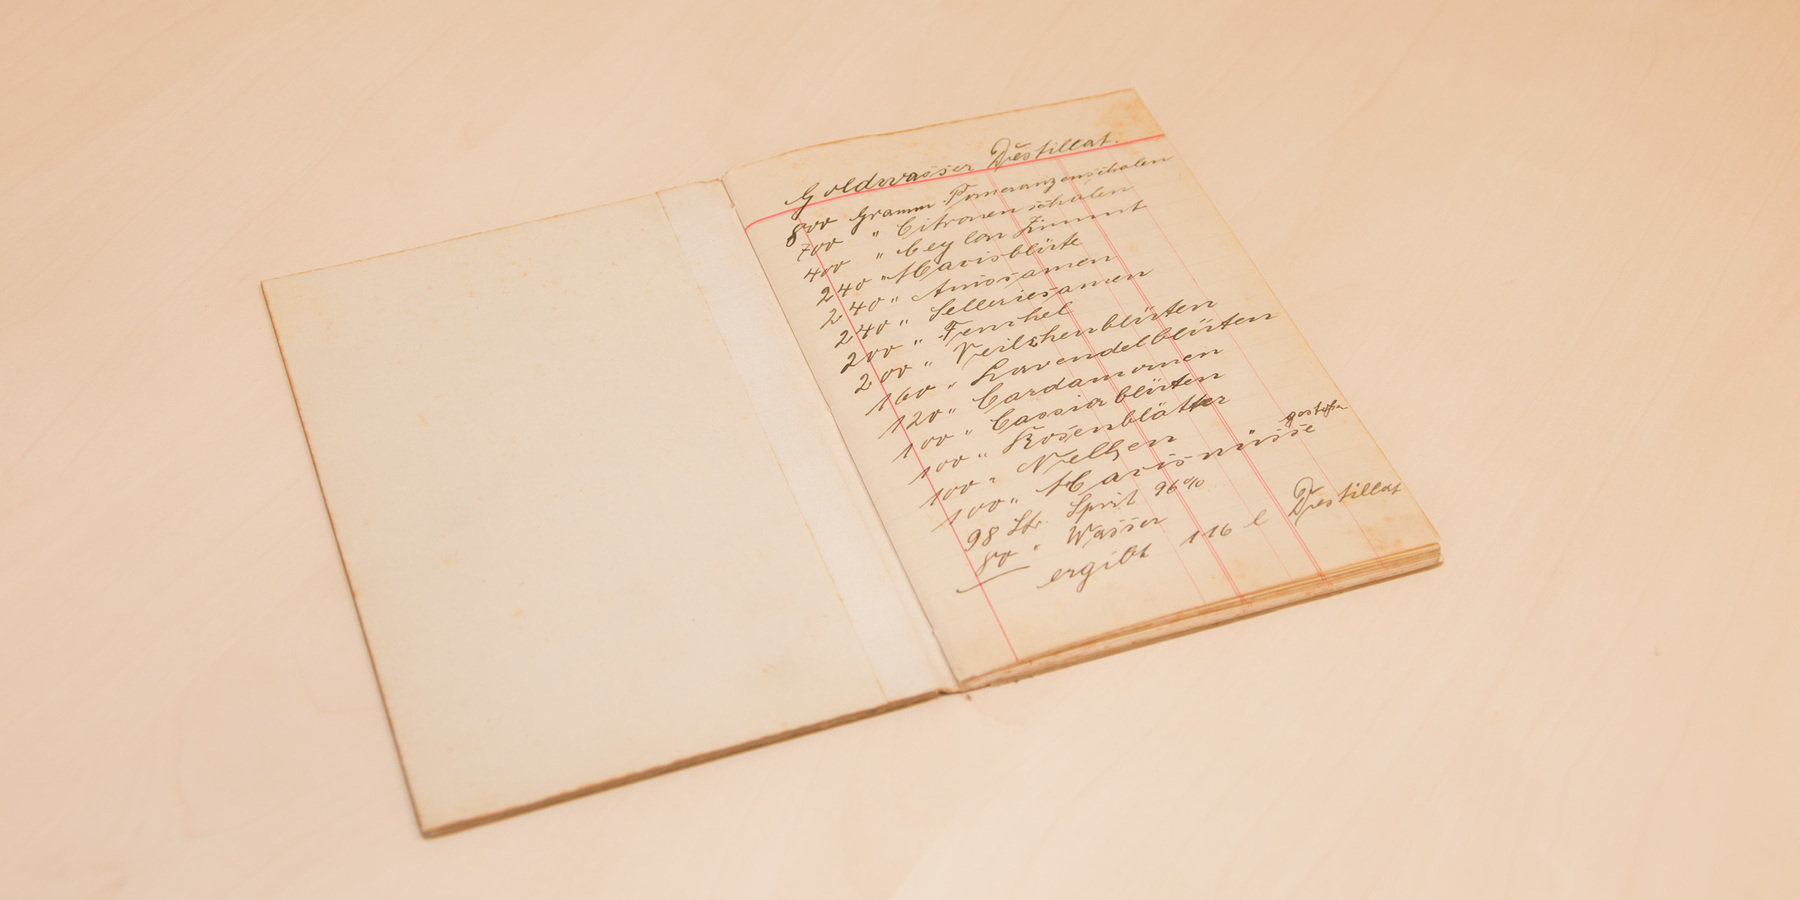 Goldwasser Destillat.
800 Gramm Pomeranzenschalen
700 " Citronenschalen
400 " Ceylon Zimmt
240 " Macisblüte
240 " Anissamen
240 " Selleriesamen
200 " Fenchel
200 " Veilchenblüten
160 " Lavendelblüten
120 " Cardamomen
100 " Cassiablüten
100 " Rosenblätter
100 " Nelken
100 " Macisnüsse gestoßen
98 Ltr. Sprit 96%
80 " Wasser
ergibt 116 l Destillat